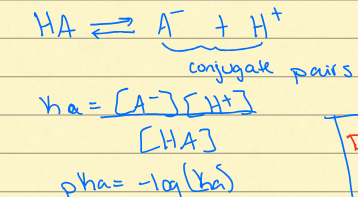 HA ⇌ A⁻ + H⁺
conjugate pairs
ka = [A⁻][H⁺]
[HA]
pka = -log(ka)